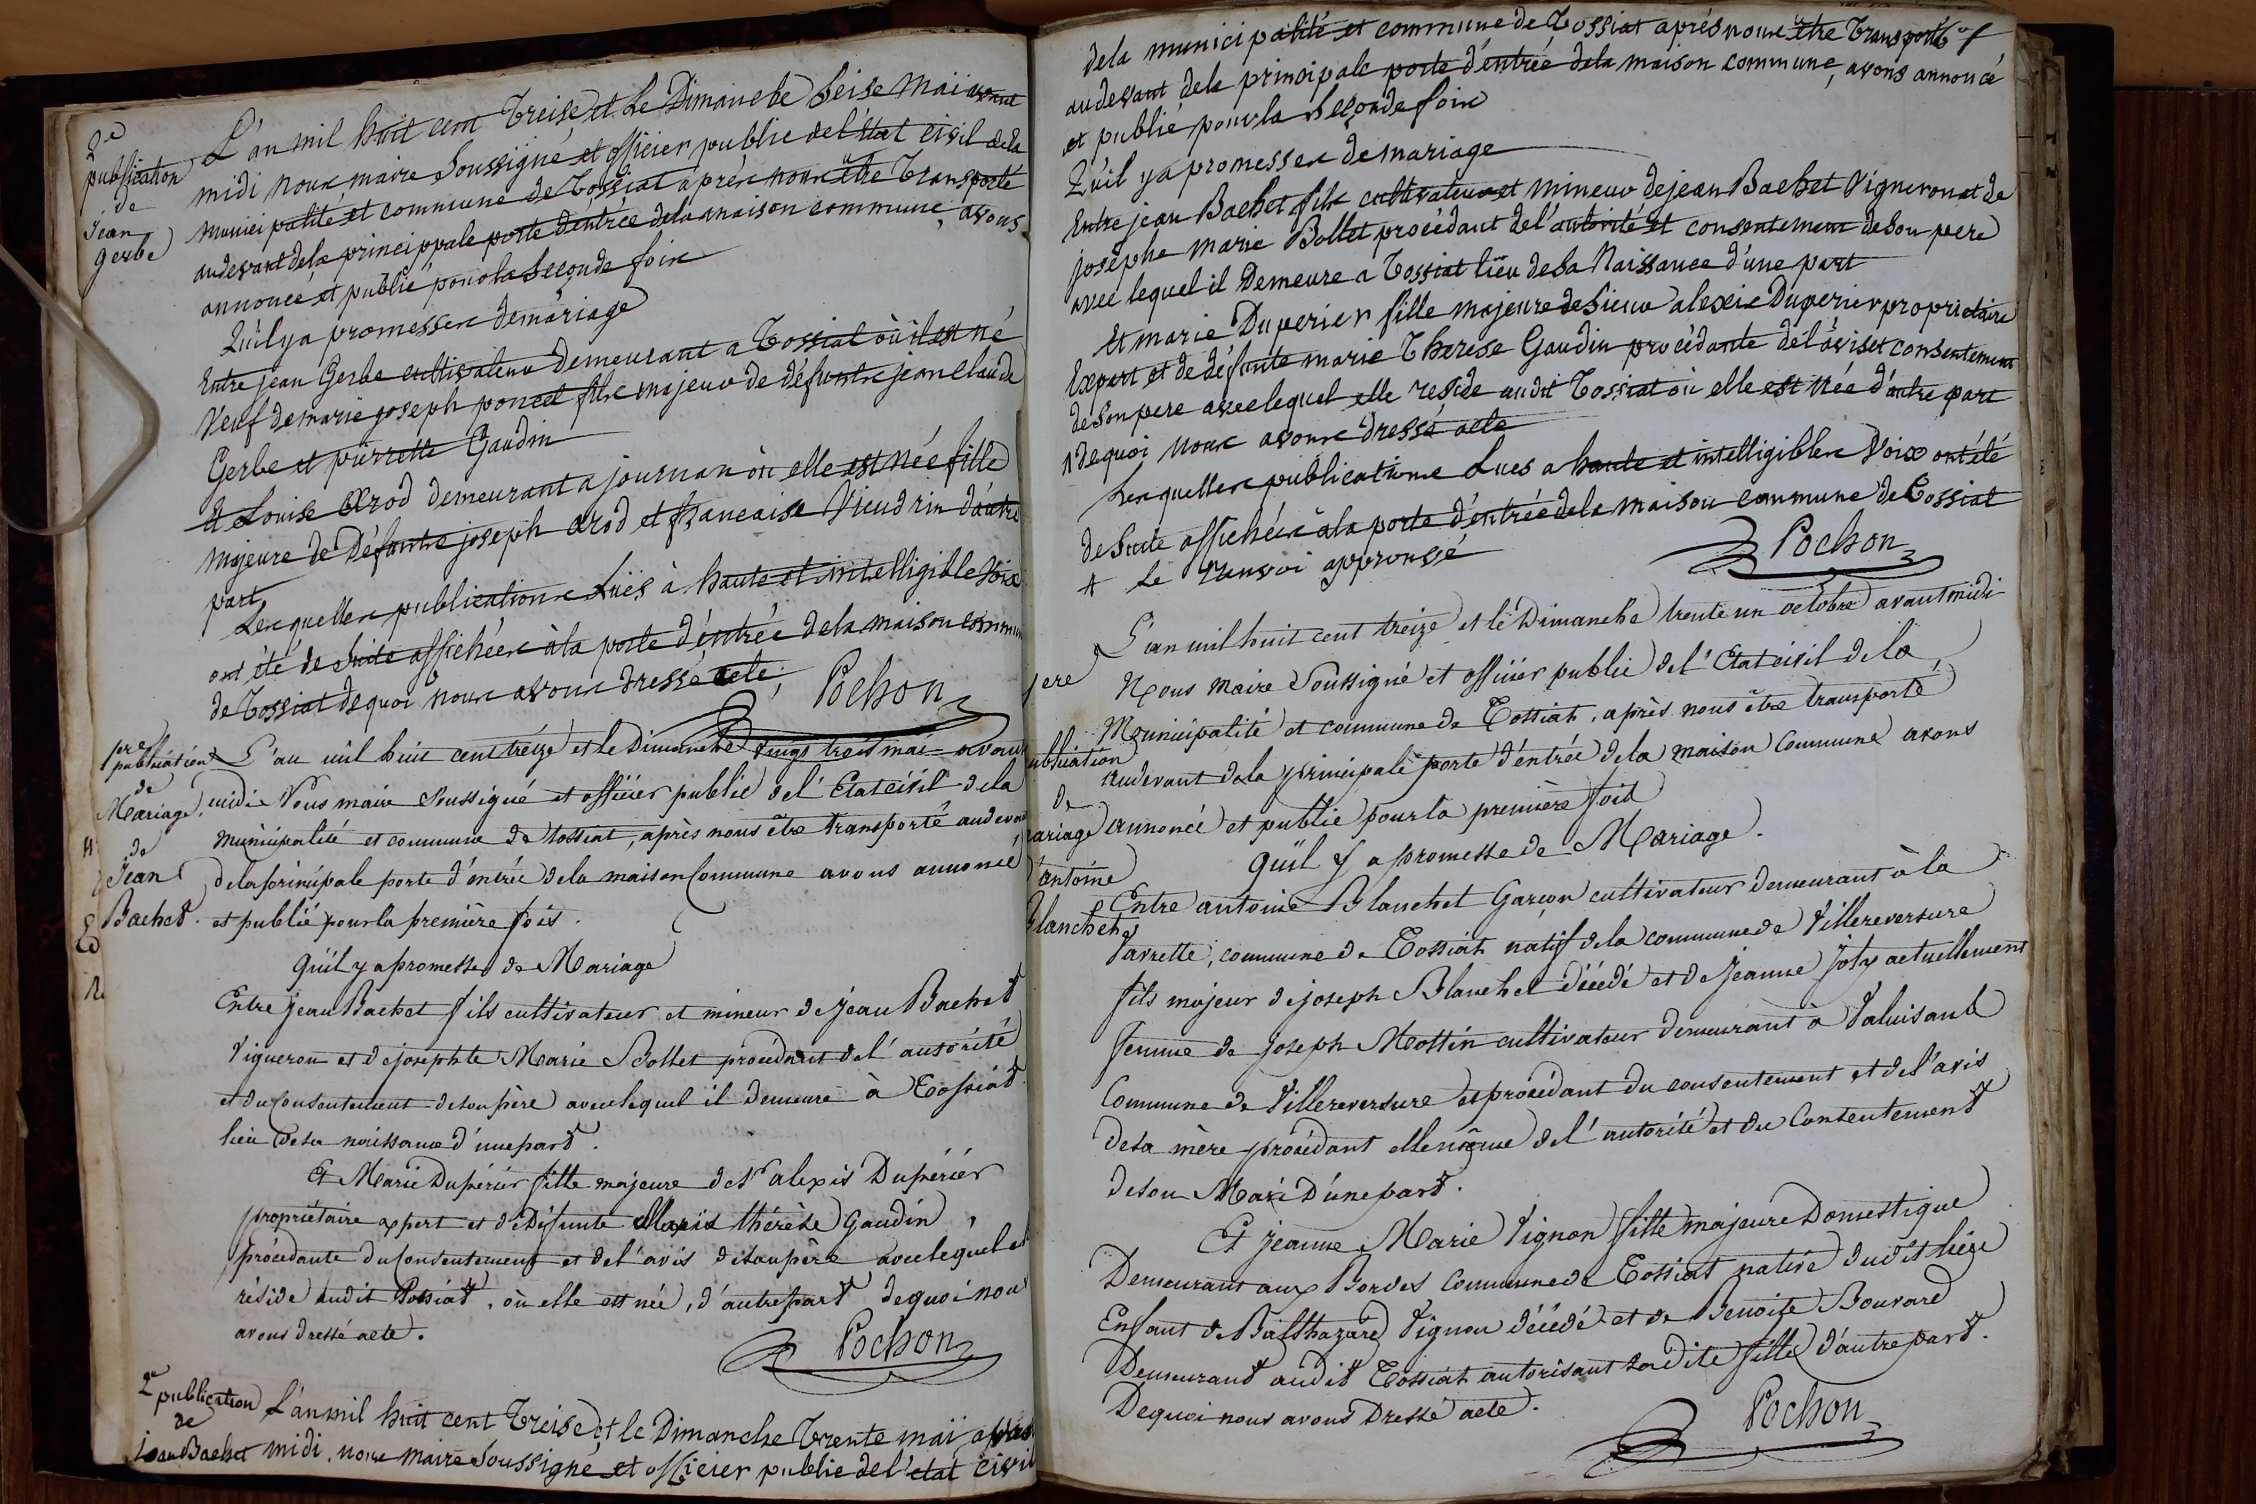 2e
publication
de
jean
gerbe
L'an mil huit cent treise et Le Dimanche Seise maï avant
midi nous maire Soussigné et officier public de l'état civil de la
municipalité et commune de Tossiat après nous être transporté
au devant de la princippale porte d'entrée de la maison commune, avons
annoncé et publié pour la Seconde fois
Qu'il y a promesses de mariage
Entre jean Gerbe cultivateur demeurant a Tossiat où il est né
Veuf de marie joseph poncet fils majeur de défunts jean claude
Gerbe et pierrette Gaudin
et Louise Orod demeurant a journan où elle est née fille
majeure de Défunts joseph Orod et francaise Vieudrin d'autre
part
Lesquelles publications Lües à haute et intelligible Voix
ont été de Suite affichées à la porte d'entrée de la maison commun
de Tossiat de quoi nous avons dressé acte
Pochon
pre
publication
de
Mariage
de
Jean
Bachet.
L'an mil huit cent treize et le Dimanche vingt trois mai avant
midi Nous maire soussigné et officier public de l'Etat civil de la
municipalité et commune de tossiat, après nous être transporté au devant
de la principale porte d'entrée de la maison Commune avons annoncé
et publié pour la première fois.
Qu'il y a promesses de Mariage
Entre Jean Bachet fils cultivateur et mineur de Jean Bachet
Vigneron et de josephte Marie Bollet procédant de l'autorité
et du Consentement de son père avec lequel il demeure à Tossiat
lieu de sa naissance d'une part.
Et Marie Dupérier fille majeure de Sr alexis Dupérier
propriétaire expert et de Défunte Marie thérèse Gaudin,
procédante du Consentement et de l'avis de son père avec lequel el
réside audit Tossiat, où elle est née, d'autre part de quoi nou
avons dressé acte.
Pochon
2e
publication
de
jean Bachet
L'an mil huit cent Treise et le Dimanche Trente maï avant
midi, nous maire Soussigné et officier public de l'état civil
de la municipalité et commune de Tossiat après nous être transporté
au devant de la principale porte d'entrée de la maison commune, avons annoncé
et publié pour la Seconde fois
Qu'il y a promesses de mariage
Entre jean Bachet fils cultivateur et mineur de jean Bachet Vigneron et de
josephe marie Bollet procédant de l'autorité et consentement de Son pere
avec lequel il Demeure a Tossiat lieu de Sa Naissance d'une part
Et marie Duperier fille majeure de Sieur alexis Duperier proprietaire
Expert et de défunte marie Therese Gaudin procédante de l'avis et consentement
de Son pere avec lequel elle reside audit Tossiat où elle est Née d'autre part
de quoi nous avons dressé acte
Lesquelles publications Lues a haute et intelligibles Voix ont été
de Suite affichées à la porte d'entrée de la maison commune de Tossiat
Le renvoi approuvé
Pochon
1ere
ublication
de
ariage
d'antoine
Blanchet
L'an mil huit cent treize et le Dimanche trente un octobre avant midi
Nous Maire Soussigné et officier public de l'Etat civil de la
Municipalité et commune de Tossiat, après nous être transporté
au devant de la principale porte d'entrée de la maison Commune avons
annoncé et publié pour la première fois
Qu'il y a promesse de Mariage.
Entre antoine Blanchet Garçon cultivateur demeurant à la
Vavrette, commune de Tossiat natif de la commune de Villereversure
fils majeur de joseph Blanchet décédé et de Jeanne Joly actuellement
femme de Joseph Mottin cultivateur demeurant à Valuisant
Commune de Villereversure et procédant du consentement et de l'avis
de sa mère procédant elle même de l'autorité et du Consentement
de son Mari D'une part.
Et Jeanne Marie Vignon fille majeure Domestique
Demeurant aux Bordes Commune de Tossiat native dudit lieu
Enfant de Balthazard Vignon décédé et de Benoite Bouvard
Demeurant audit Tossiat autorisant sa dite fille d'autre part.
De quoi nous avons Dressé acte.
Pochon